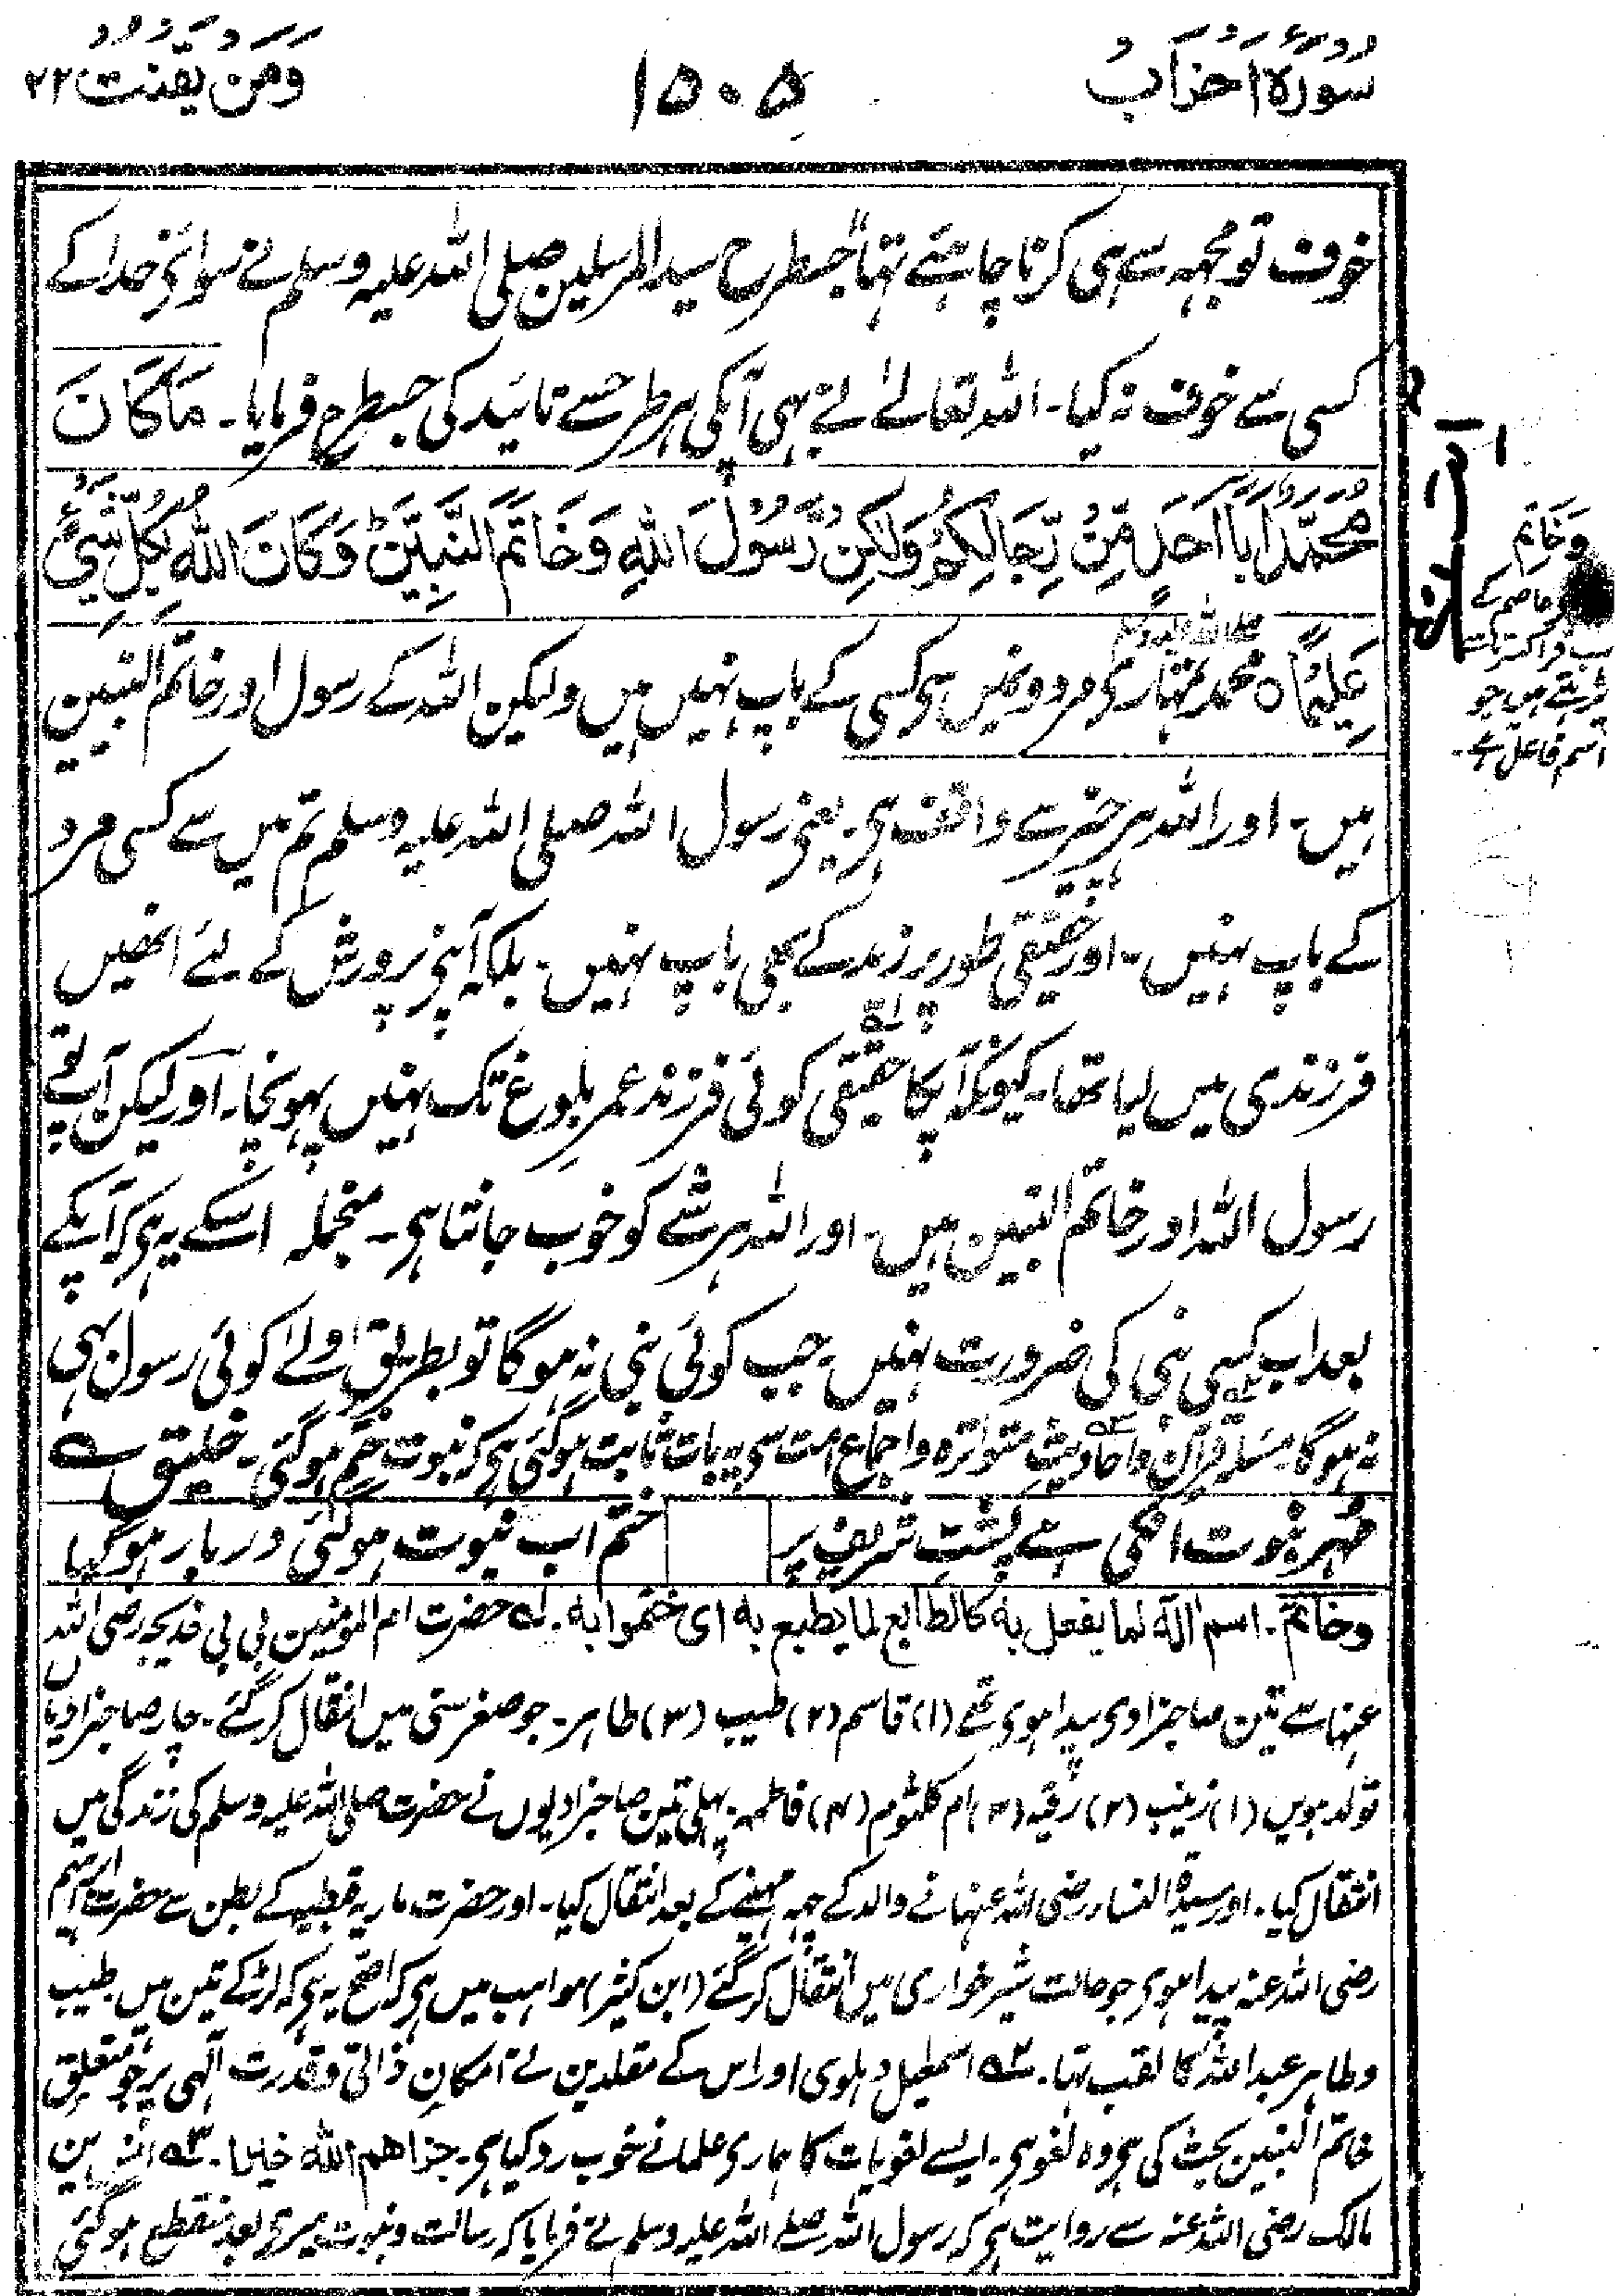 سُوْرَۃُ اَحْزَابُ
۱۵۰۵
وَمَنْ يَّقْنُتْ ۲۲
خوف تو مجہہ سے ہی کرنا چاہئے تہا" جسطرح سید المرسلین صلی اللہ علیہ وسلم نے سوائے خدا کے
کسی سے خوف نہ کیا۔ اللہ تعالےٰ نے بہی آپکی ہر طرحسے تائید کی جسطرح فرمایا۔ مَا كَانَ
مُحَمَّدٌ اَبَآ اَحَدٍ مِّنْ رِّجَالِكُمْ وَلٰكِنْ رَّسُوْلَ اللهِ وَخَاتَمَ النَّبِيّٖنَ ؕ وَكَانَ اللهُ بِكُلِّ شَیْءٍ
عَلِيْمًا ہ محمد صلی اللہ علیہ وسلم تمہاری مردونمیں سے کسی کے باپ نہیں ہیں ولیکن اللہ کے رسول اور خاتَم النبیین
ہیں۔ اور اللہ ہر چیزسے واقف ہی۔ یعنی رسول اللہ صلی اللہ علیہ وسلم تم میں سے کسی مرد
کے باپ نہیں۔ اور حقیقی طور پر زید کے بھی باپ نہیں۔ بلکہ آپنے پرورش کے لئے انھیں
فرزندی میں لیا تھا۔ کیونکہ آپکا حقیقی کوئی فرزند عمرِ بلوغ تک نہیں پہونچا۔ اور لیکن آپ تو
رسول اللہ اور خاتم النبیین ہیں۔ اور اللہ ہر شے کو خوب جانتا ہی۔ منجملہ اسکے یہ ہی کہ آپکے
بعد اب کسی نبی کی ضرورت نہیں۔ جب کوئی نبی نہ ہوگا تو بطریق اولےٰ کوئی رسول بہی
نہ ہوگا۔ مسئلہ قرآن و احادیثِ متواترہ و اجماع امت سی یہ بات ثابت ہوگئی ہی کہ نبوت ختم ہوگئی۔ خلیق ے
مُہرِ نبوت انکی ہے پشتِ شریف پر
ختم اب نبوت ہوگئی دربار ہوگیا
وخاتَم۔ اسم الۃ لما یفعل بہ کالطابع لما یطبع بہ ای ختموا بہ۔ ۱؎ حضرت ام المومنین بی بی خدیجہ رضی اللہ
عنہا سے تین صاحبزادی پیدا ہوی تھے (۱) قاسم (۲) طیب (۳) طاہر۔ جو صغر سنی میں انتقال کرگئے۔ چار صاحبزادیاں
تولد ہویں (۱) زینب (۲) رقیہ (۳) ام کلثوم (۴) فاطمہ۔ پہلی تین صاحبزادیوں نے حضرت صلی اللہ علیہ وسلم کی زندگی میں
انتقال کیا۔ اور سیدۃ النساء رضی اللہ عنہا نے والد کے چہہ مہینے کے بعد انتقال کیا۔ اور حضرت ماریہ قبطیہ کے بطن سے حضرت ابراہیم
رضی اللہ عنہ پیدا ہوی جو حالت شیر خواری میں انتقال کرگئے (ابن کثیر) مواہب میں ہی کہ اصح یہ ہی کہ لڑکے تین ہیں۔ طیب
و طاہر عبد اللہ کا لقب تہا۔ ۲؎ اسمعیل دہلوی اور اس کے مقلدین نے امکانِ ذاتی و قدرت الٰہی پر جو متعلق
خاتم النبیین بحث کی ہی وہ لغو ہی۔ ایسے لغویات کا ہماری علما نے خوب رد کیا ہی۔ جزاهم الله خیرا۔ ۳؎ انس بن
مالک رضی اللہ عنہ سے روایت ہی کہ رسول اللہ صلے اللہ علیہ وسلم نے فرمایا کہ رسالت و نبوت میرے بعد منقطع ہوگئی
وَ خَاتِم
عاصم کے
سب قراء کسرہ
پڑہتے ہیں جو
اسم فاعل ہے۔